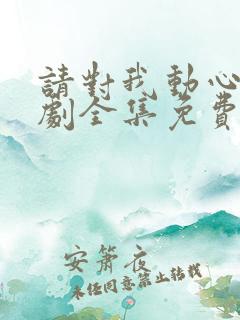 請對我動心
劇全集免費
安蕭夜
未經同意禁止轉載